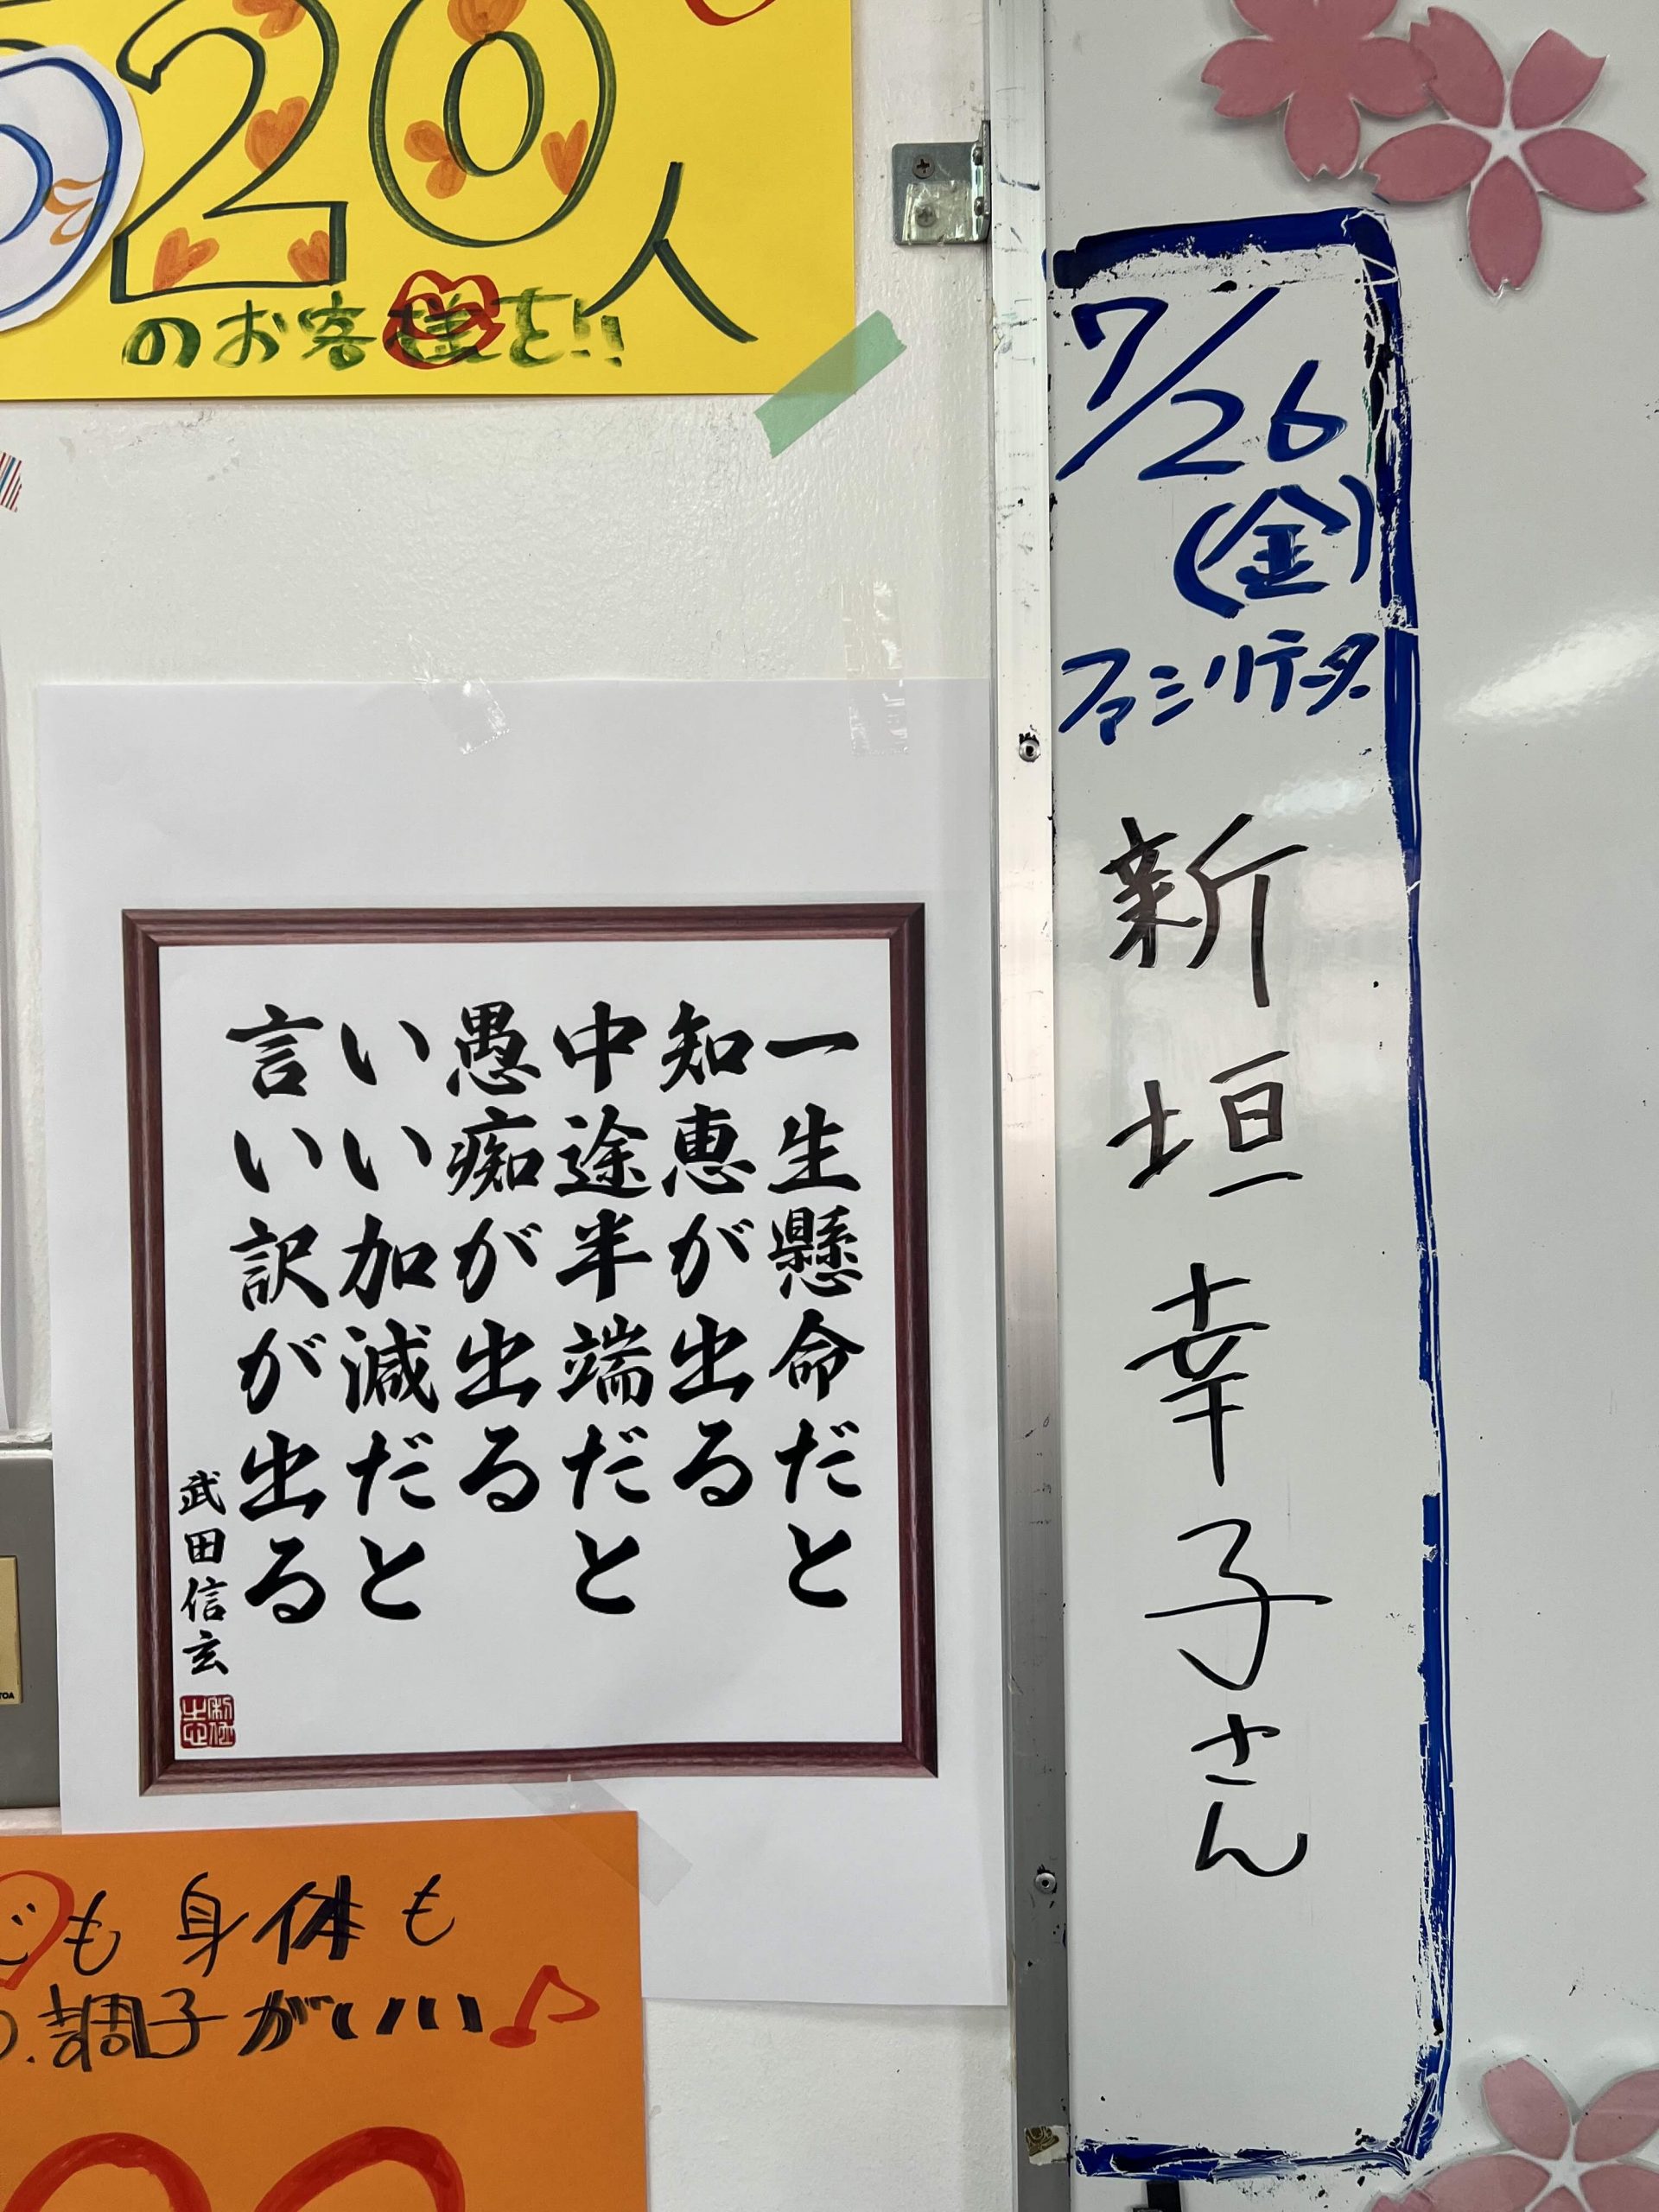 20人
のお客様を!!
7/26
(金)
ファシリテータ
新垣幸子さん
一生懸命だと
知恵が出る
中途半端だと
愚痴が出る
いい加減だと
言い訳が出る
武田信玄
も身体も
調子がいい♪
TOA